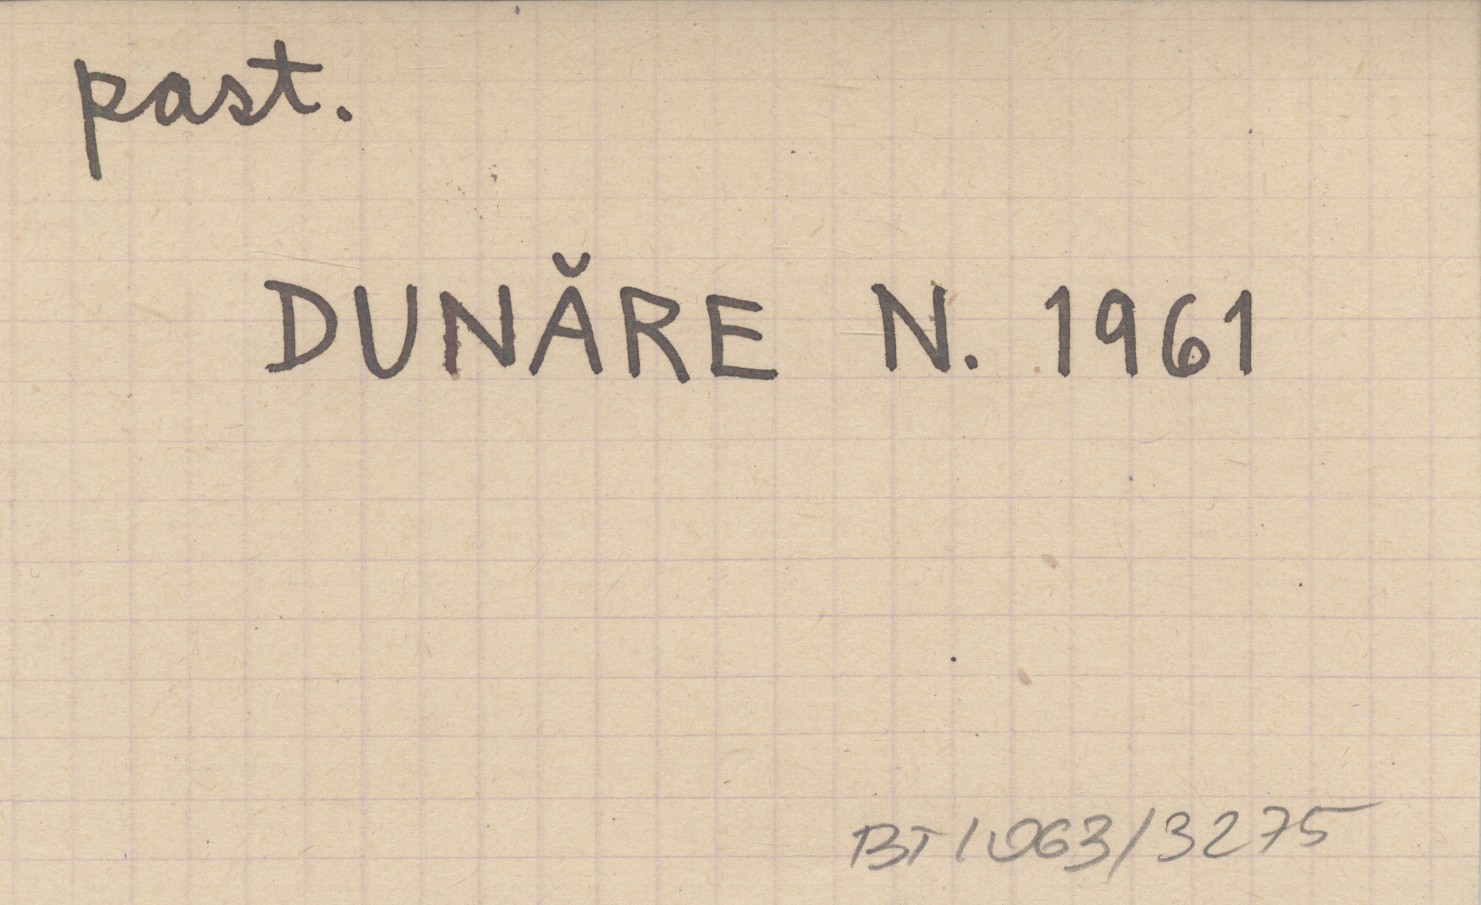 past.
DUNĂRE N. 1961
BT 1063/3275